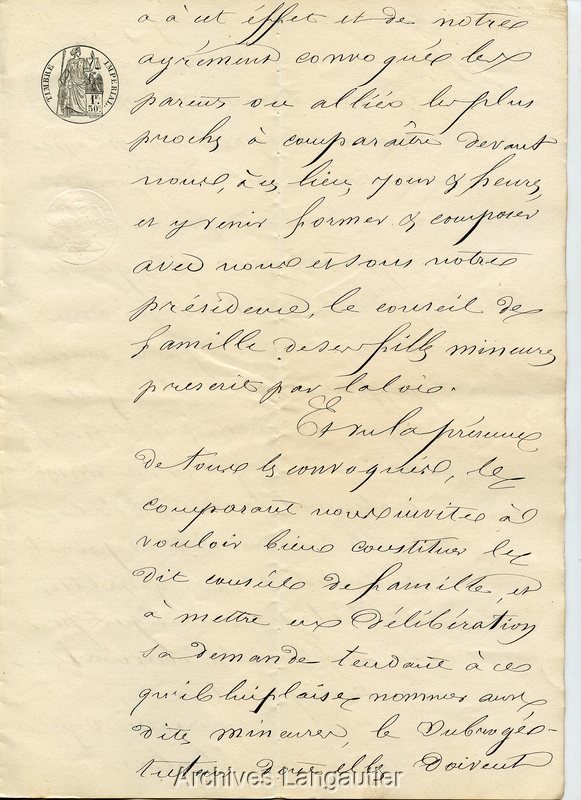 a à cet effet et de notre
agrément convoqué les
parents ou alliés les plus
proches à comparaître devant
nous, à ces lieu, jour & heure,
et y venir former & composer
avec nous et sous notre
présidence, le conseil de
famille de ses filles mineures
prescrit par la loi.
Et vu la présence
de tous les convoqués, le
comparant nous invite à
vouloir bien constituer le
dit conseil de famille, et
à mettre en délibération
sa demande tendant à ce
qu'il lui plaise nommer aux
dites mineures, le subrogé-
tuteur dont elles doivent
TIMBRE IMPÉRIAL
1F.
50c.
Archives Langautier